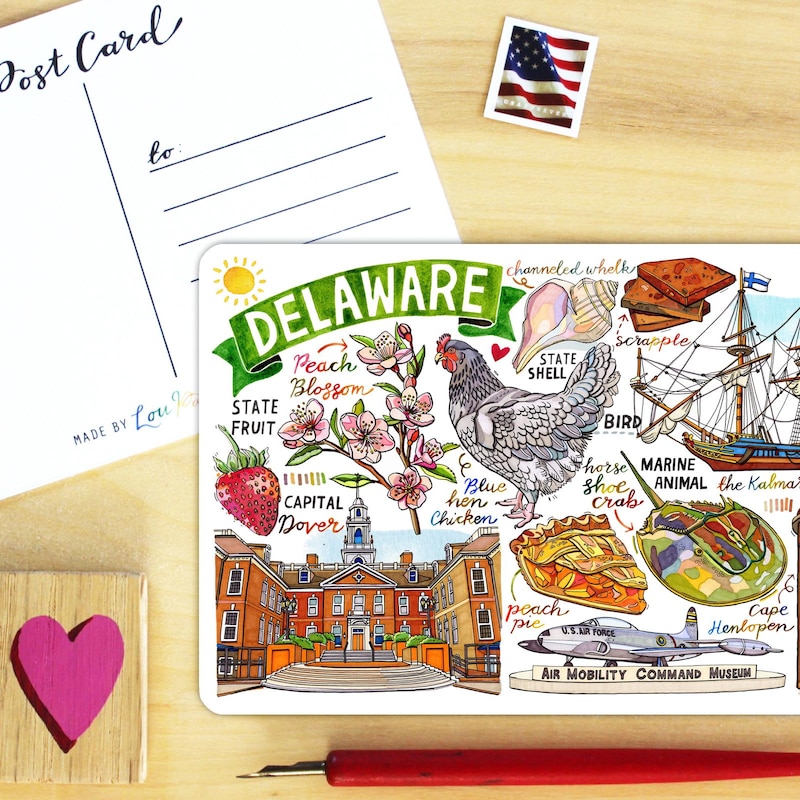 Post Card
to:
MADE BY Lou
DELAWARE
channeled whelk
scrapple
STATE
SHELL
Peach
Blossom
STATE
FRUIT
BIRD
Blue
hen
Chicken
CAPITAL
Dover
horse
shoe
crab
MARINE
ANIMAL
the Kalmar
peach
pie
Cape
Henlopen
U.S. AIR FORCE
AIR MOBILITY COMMAND MUSEUM